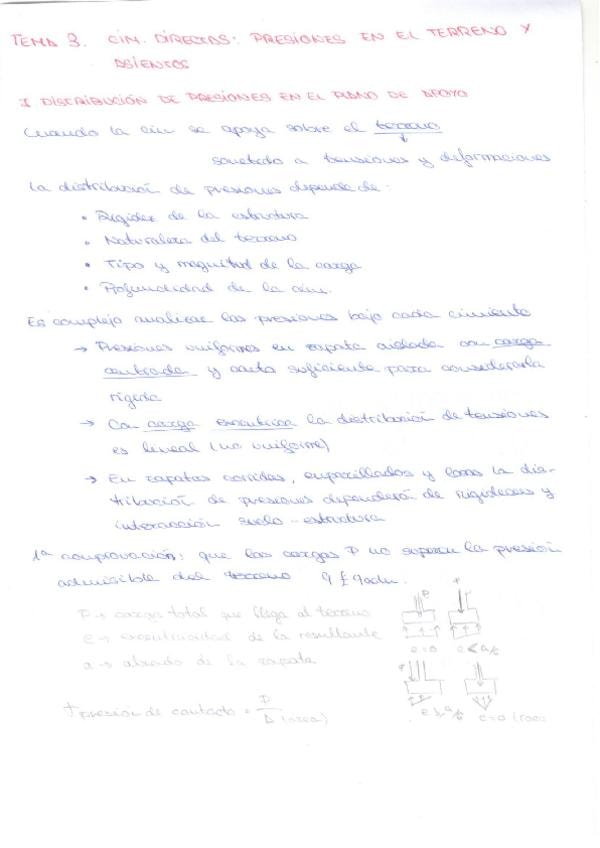 TEMA 3. CIM. DIRECTAS: PRESIONES EN EL TERRENO Y
ASIENTOS
I DISTRIBUCIÓN DE PRESIONES EN EL PLANO DE APOYO
Cuando la cim se apoya sobre el terreno
sometido a tensiones y deformaciones
La distribución de presiones depende de:
• Rigidez de la estructura
• Naturaleza del terreno
• Tipo y magnitud de la carga
• Profundidad de la cim.
Es complejo analizar las presiones bajo cada cimiento
→ Presiones uniformes en zapata aislada con carga
centrada y canto suficiente para considerarla
rígida
→ Con carga excentrica la distribución de tensiones
es lineal (no uniforme)
→ En zapatas corridas, emparrillados y losas la dis-
tribución de presiones dependerá de rigideces y
interacción suelo-estructura
1ª comprovación: que las cargas P no superen la presión
admisible del terreno q ≤ qadm.
P → carga total que llega al terreno
e → excentricidad de la resultante
a → alzado de la zapata
P
e=0 e<a/6
presión de contacto = P / A (area)
e≥a/6 e=0 (roca